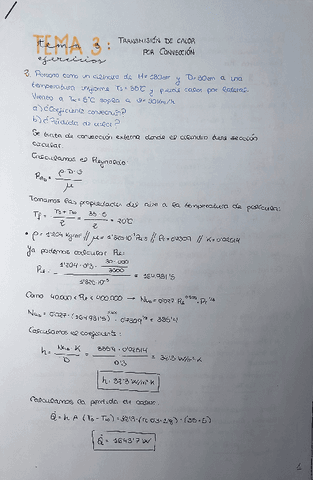 TEMA 3: TRANSMISIÓN DE CALOR
POR CONVECCIÓN
ejercicios
3. Persona como un cilindro de H=180cm y D=30cm a una
temperatura uniforme Ts=35°C y pierde calor por lateral.
Viento a T∞=5°C sopla a v=30km/h
a) ¿Coeficiente convección?
b) ¿Pérdida de calor?
Se trata de convección externa donde el cilindro tiene sección
circular.
Calculamos el Reynolds:
Re_D = ρ·D·v / μ
Tomamos las propiedades del aire a la temperatura de película:
Tf = (Ts + T∞) / 2 = = 20°C
• ρ = 1'204 kg/m³ // μ = // Pr = 0'7309 // K = 0'02514
Ya podemos calcular Re:
Re = 1'204 · 0'3 · 30·000/3600 / = 164931'5
Como 40.000 < Re < 400.000 → Nu_D = 0'027 Re^0'805 · Pr^1/3
Nu_D = 0'027 · (164931'5)^0'805 · 0'7309^1/3 =
Calculamos el coeficiente:
h = Nu_D · K / D =
Calculamos la pérdida de calor:
Q̇ = h A (Ts - T∞) = · (π 0'3 · 1'8) · (35-5)
Q̇ = 1643'7 W
1